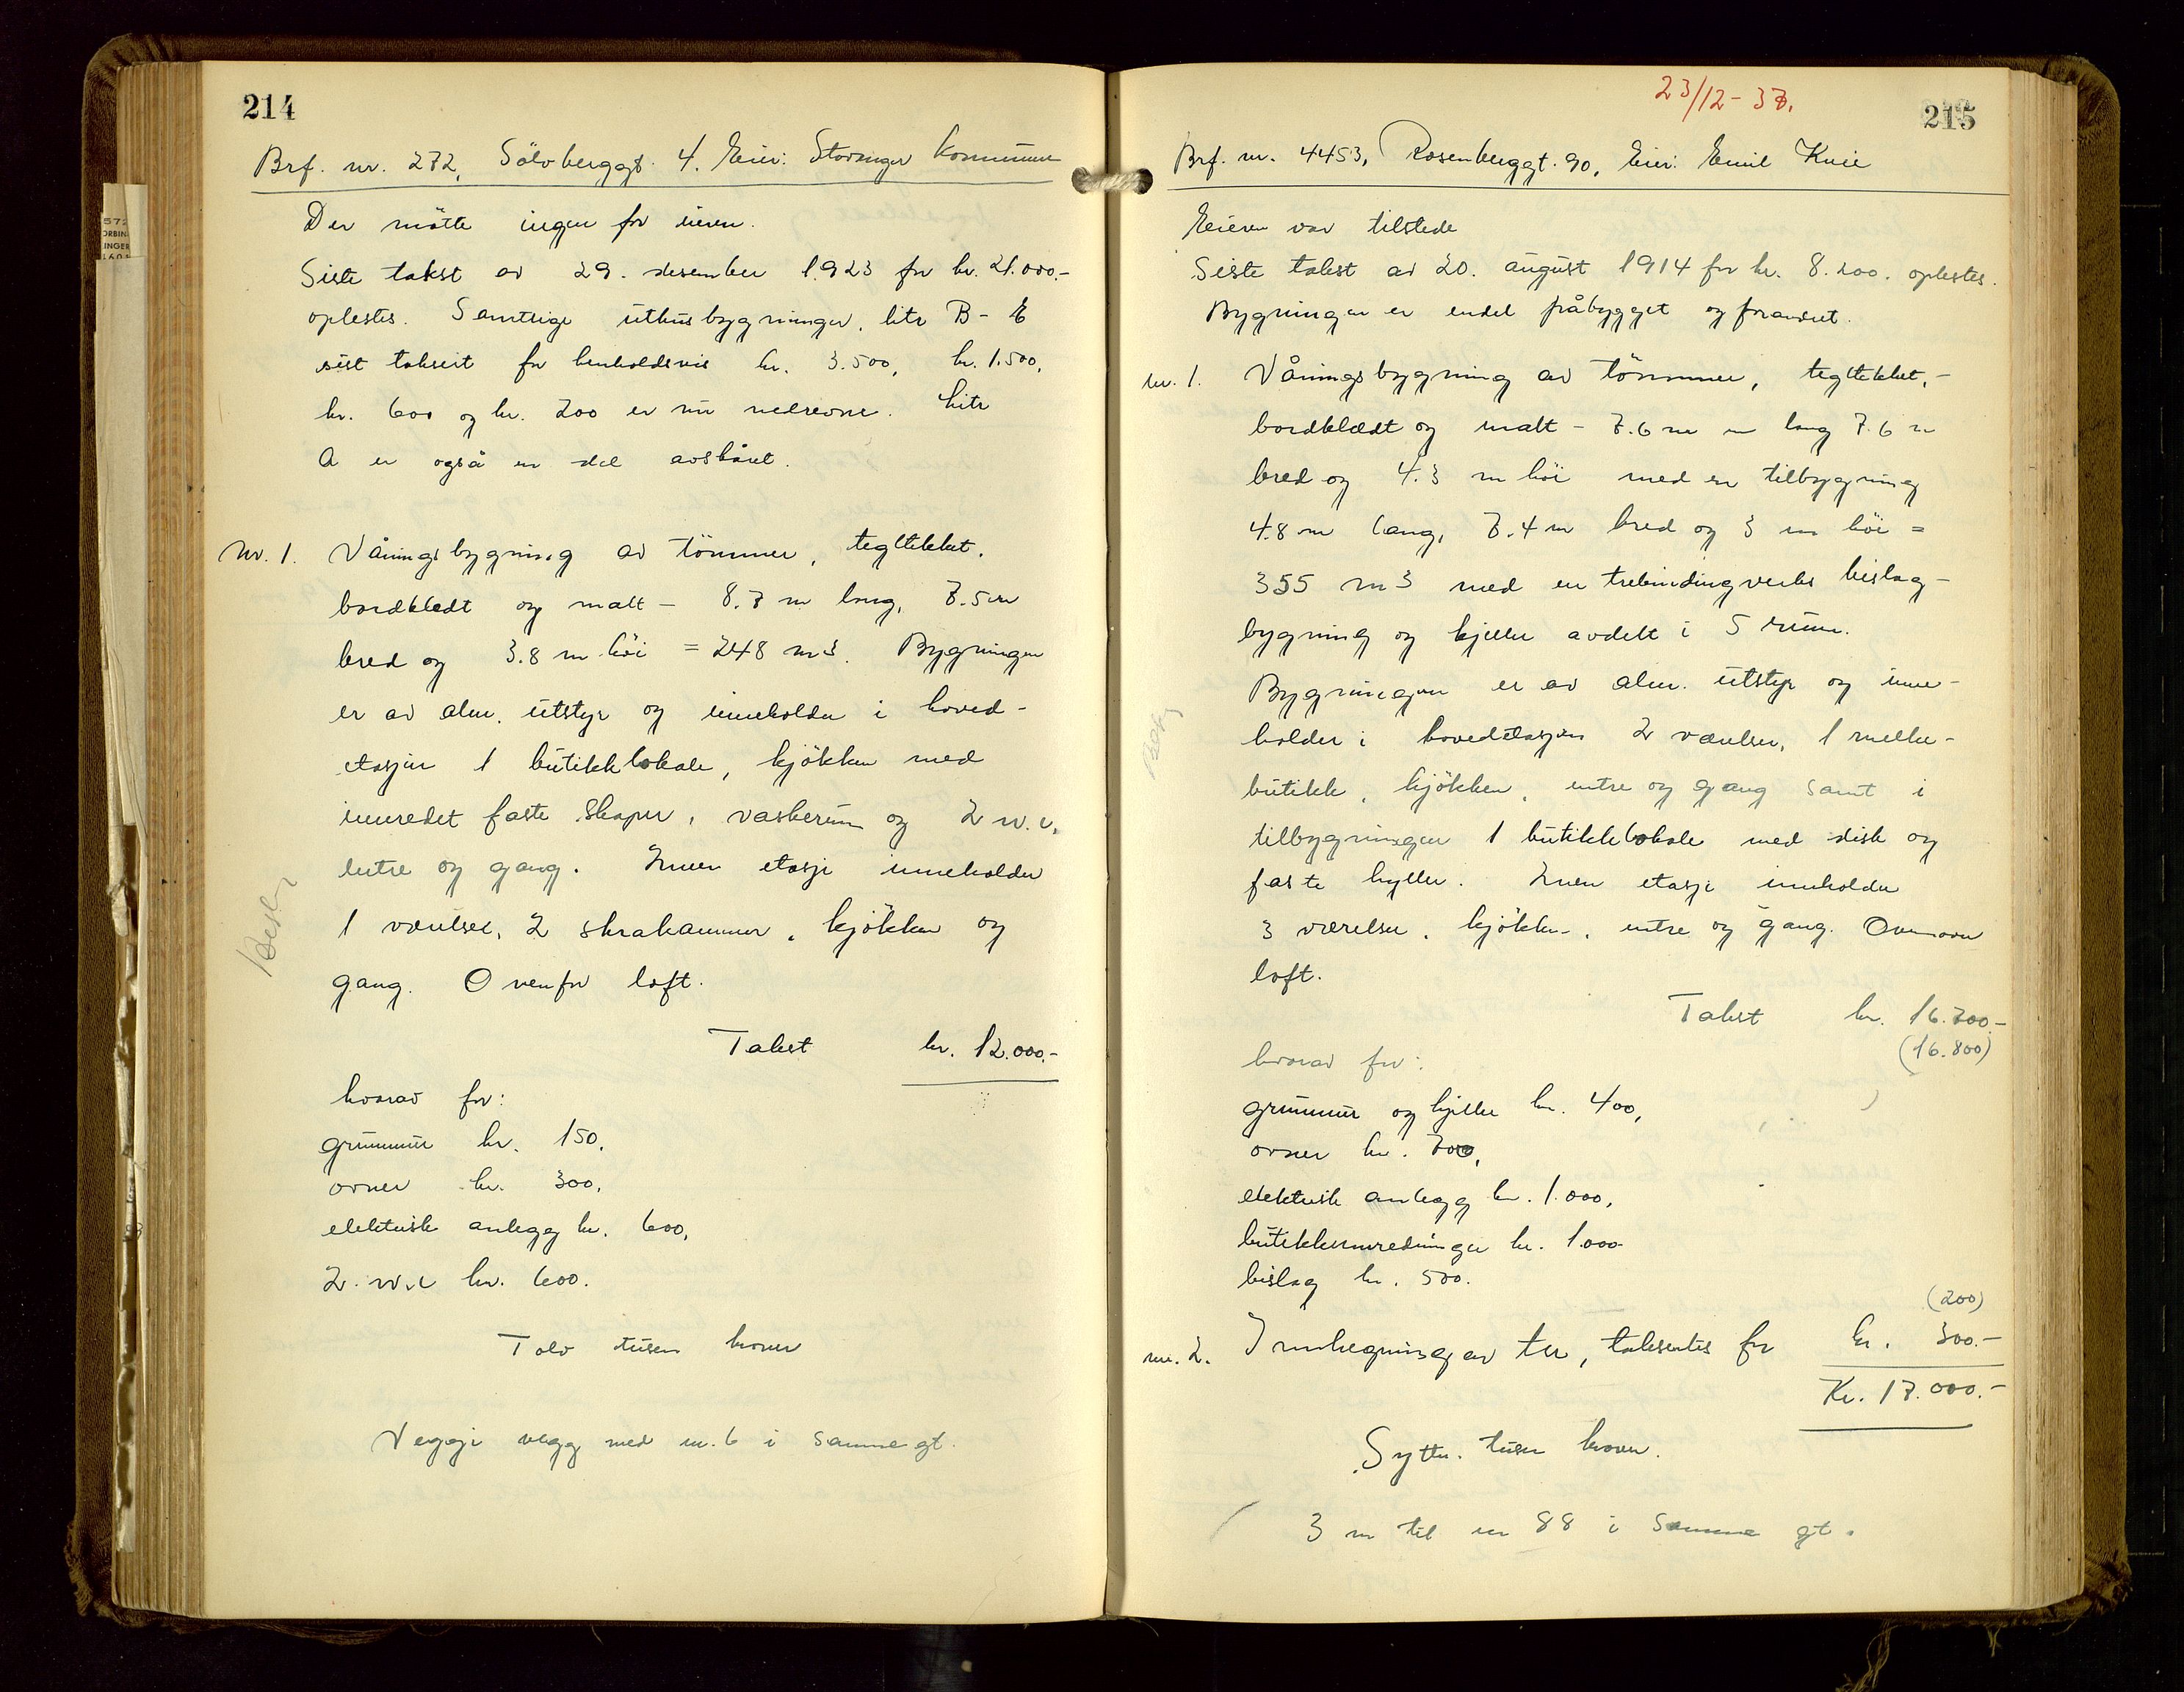 214
Brf. nr. 272, Sölvberggt. 4. Eier: Stavanger Kommune
Der mötte ingen for eieren.
Siste takst av 29. desember 1923 for kr. 21.000.-
oplestes. Samtlige uthusbygninger, litr B - E
sist taksert for henholdsvis kr. 3.500, kr. 1.500,
kr. 600 og kr. 200 er nu nedrevne. Litr
A er også en del avskåret.
Nr. 1. Våningsbygning av tömmer, tegltekket,
bordklædt og malt - 8.7 m lang, 7.5 m
bred og 3.8 m höi = 248 m3. Bygningen
er av alm. utstyr og inneholder i hoved-
etasjen 1 butikklokale, kjökken med
innredet faste skaper, vaskerum og 2 w.c,
entre og gang. 2nen etasje inneholder
1 værelse, 2 skrakammer, kjökken og
gang. Ovenfor loft.
Takst kr. 12.000.-
hvorav for:
grunmur kr. 150,
ovner kr. 300,
elektrisk anlegg kr. 600,
2 w.c kr. 600.
Tolv tusen kroner
Vegg i vegg med nr. 6 i samme gt.
23/12-37.
215
Brf. nr. 4453, Rosenberggt. 90, Eier: Emil Knie
Eieren var tilstede
Siste takst av 20. august 1914 for kr. 8.200. oplestes.
Bygningen er endel påbygget og forandret.
nr. 1. Våningsbygning av tömmer, tegltekket,-
bordklædt og malt - 7.6 m lang 7.6 m
bred og 4.3 m höi med en tilbygning
4.8 m lang, 7.4 m bred og 3 m höi =
355 m3 med en trebindingverks bislag-
bygning og kjeller avdelt i 5 rum.
Bygningen er av alm. utstyr og inne-
holder i hovedetasjen 2 værelser, 1 melke-
butikk, kjökken, entre og gang samt i
tilbygningen 1 butikklokale med disk og
faste hyller. 2nen etasje inneholder
3 værelser, kjökken, entre og gang. Ovenover
loft.
Takst kr. 16.700.-
(16.800)
hvorav for:
grunmur og kjeller kr. 400,
ovner kr. 700,
elektrisk anlegg kr. 1.000,
butikkinnredninger kr. 1.000
bislag kr. 500.
(200)
nr. 2. Innhegning av tre, takseres for kr. 300.-
Kr. 17.000.-
Sytten tusen kroner.
3 m til nr 88 i samme gt.